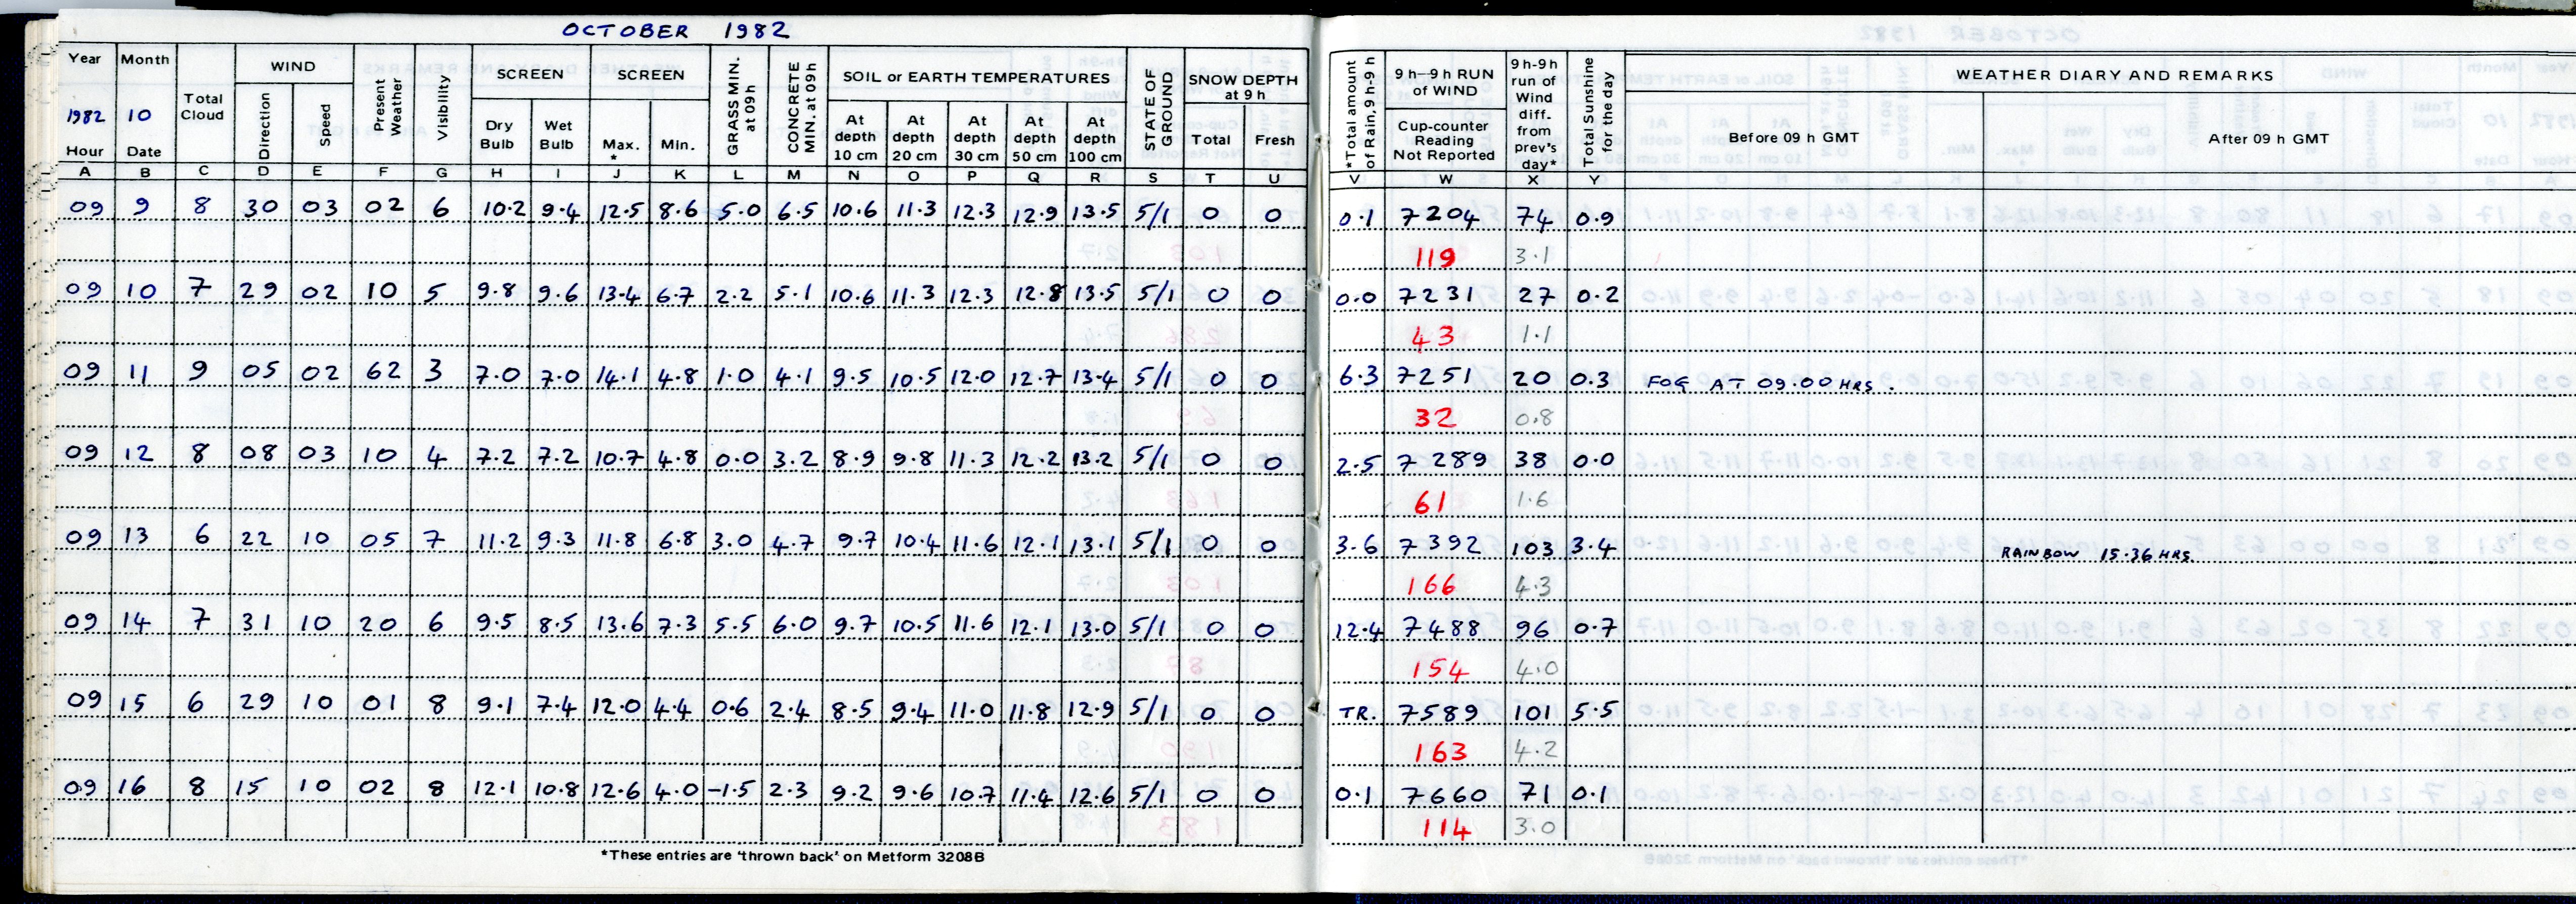 OCTOBER 1982
Year Month Total Cloud WIND Direction Speed Present Weather Visibility SCREEN Dry Bulb Wet Bulb SCREEN Max. * Min. GRASS MIN. at 09h CONCRETE MIN. at 09h SOIL or EARTH TEMPERATURES At depth 10 cm At depth 20 cm At depth 30 cm At depth 50 cm At depth 100 cm STATE OF GROUND SNOW DEPTH at 9 h Total Fresh *Total amount of Rain, 9 h-9 h 9 h-9 h RUN of WIND Cup-counter Reading Not Reported 9h-9h run of Wind diff. from prev's day* Total Sunshine for the day WEATHER DIARY AND REMARKS Before 09 h GMT After 09 h GMT
1982 10
Hour Date
A B C D E F G H I J K L M N O P Q R S T U V W X Y
09 9 8 30 03 02 6 10.2 9.4 12.5 8.6 5.0 6.5 10.6 11.3 12.3 12.9 13.5 5/1 0 0 0.1 7204 74 0.9
119 3.1
09 10 7 29 02 10 5 9.8 9.6 13.4 6.7 2.2 5.1 10.6 11.3 12.3 12.8 13.5 5/1 0 0 0.0 7231 27 0.2
43 1.1
09 11 9 05 02 62 3 7.0 7.0 14.1 4.8 1.0 4.1 9.5 10.5 12.0 12.7 13.4 5/1 0 0 6.3 7251 20 0.3 FOG AT 09.00 HRS.
32 0.8
09 12 8 08 03 10 4 7.2 7.2 10.7 4.8 0.0 3.2 8.9 9.8 11.3 12.2 13.2 5/1 0 0 2.5 7289 38 0.0
61 1.6
09 13 6 22 10 05 7 11.2 9.3 11.8 6.8 3.0 4.7 9.7 10.4 11.6 12.1 13.1 5/1 0 0 3.6 7392 103 3.4 RAINBOW 15.36 HRS.
166 4.3
09 14 7 31 10 20 6 9.5 8.5 13.6 7.3 5.5 6.0 9.7 10.5 11.6 12.1 13.0 5/1 0 0 12.4 7488 96 0.7
154 4.0
09 15 6 29 10 01 8 9.1 7.4 12.0 4.4 0.6 2.4 8.5 9.4 11.0 11.8 12.9 5/1 0 0 TR. 7589 101 5.5
163 4.2
09 16 8 15 10 02 8 12.1 10.8 12.6 4.0 -1.5 2.3 9.2 9.6 10.7 11.4 12.6 5/1 0 0 0.1 7660 71 0.1
114 3.0
*These entries are 'thrown back' on Metform 3208B